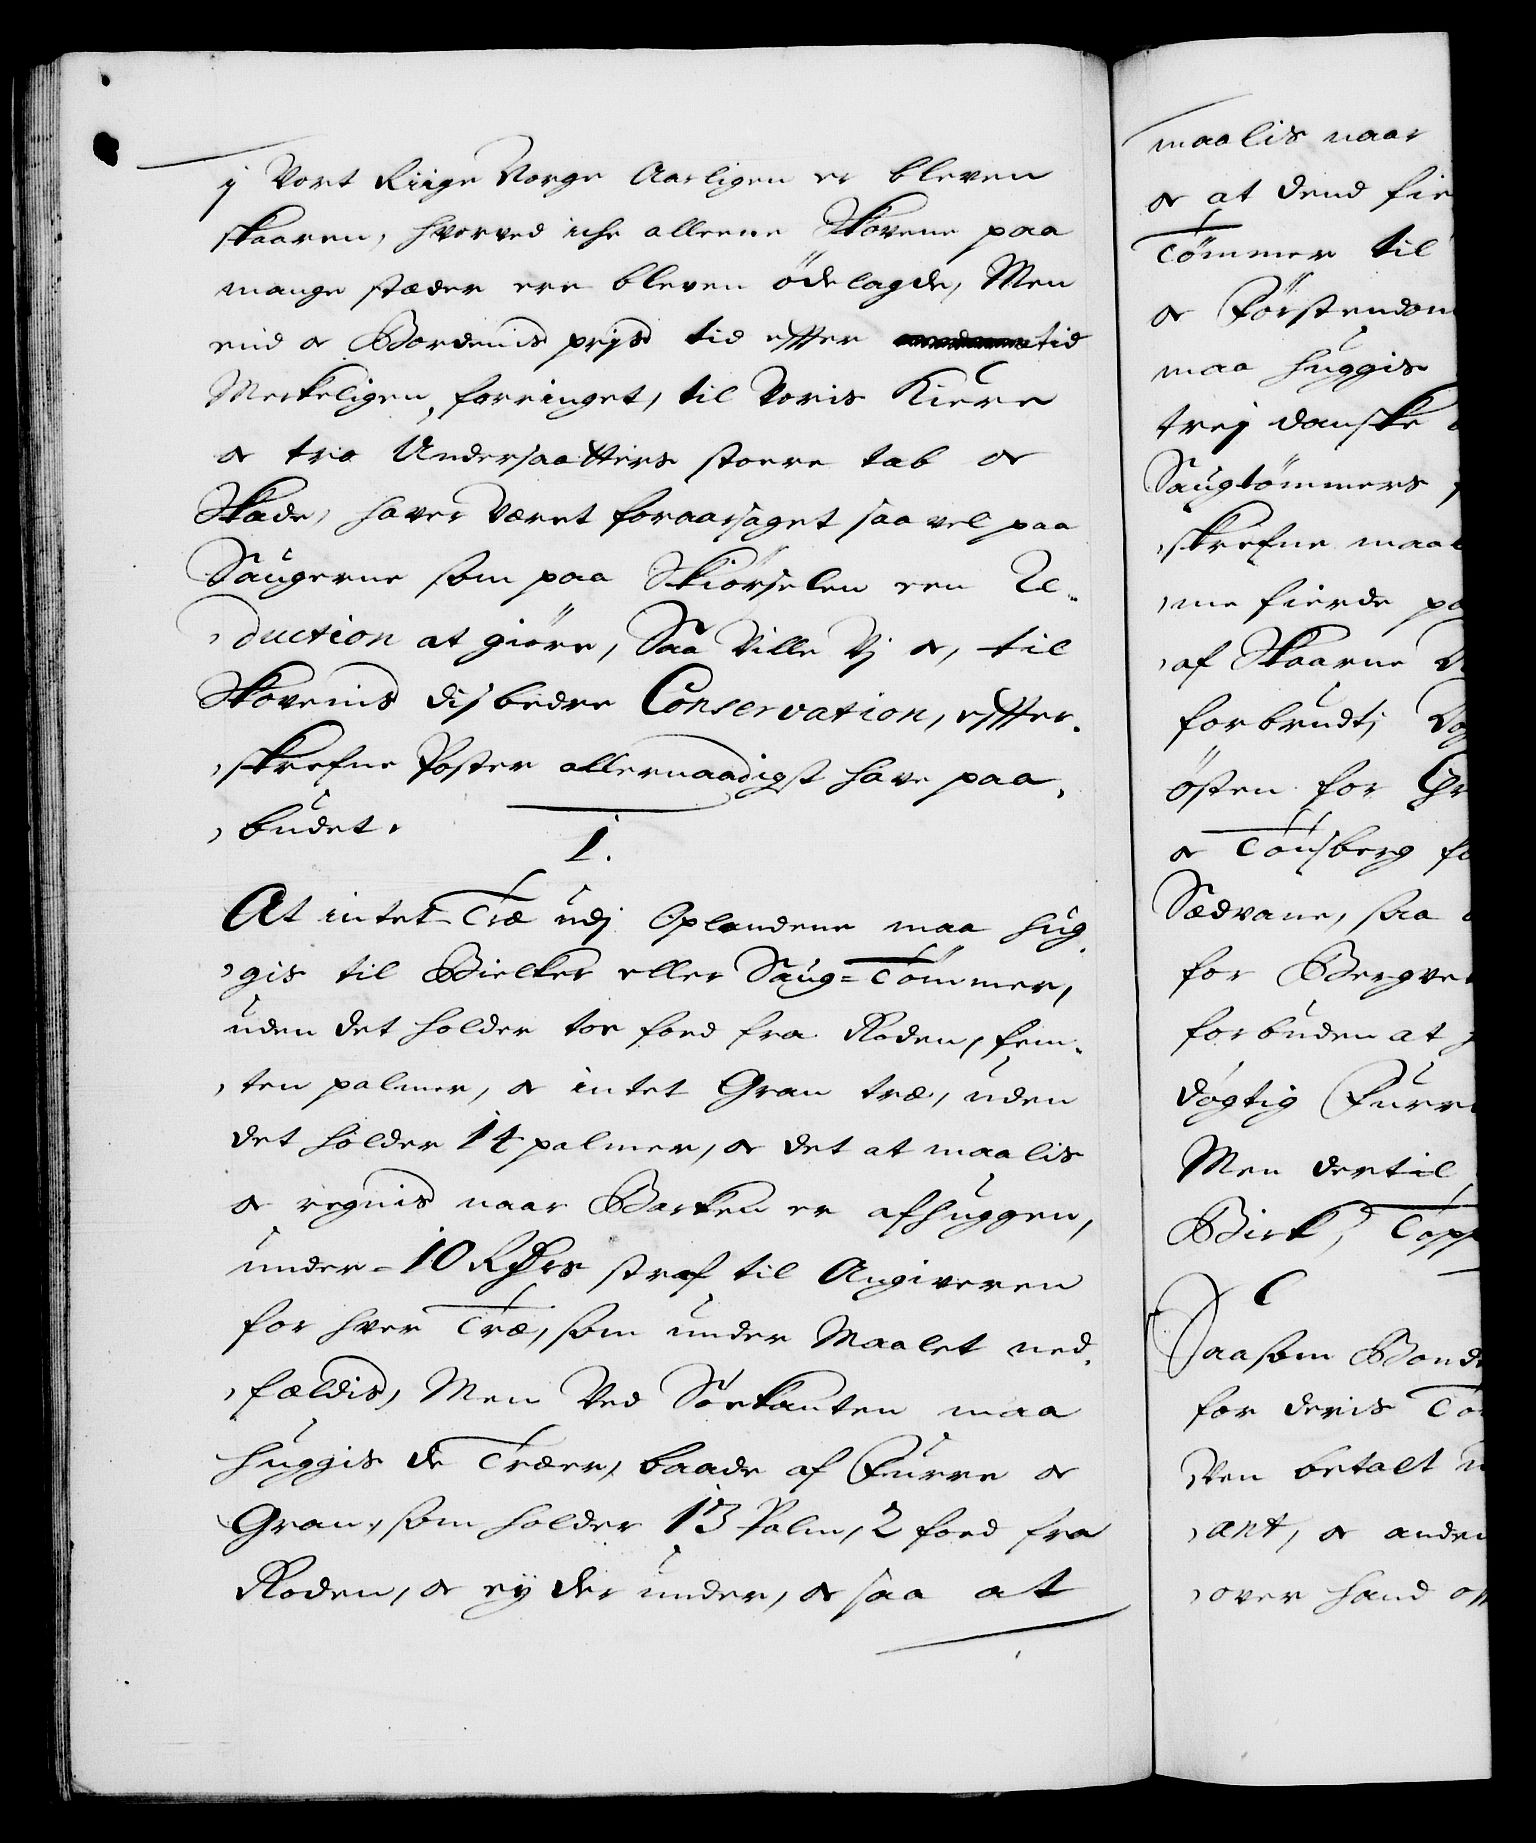 j Vort Riige Norge Aarligen er bleven
skaaren, hvorved iche alleene Skovene paa
mange stæder ere bleven ödelagde, Men
end oc Bordenis prijs tid effter tid
Merkeligen forringet, til Voris Kiere
oc tro Undersaatters stoere tab oc
Skade, haver Været foraarsaget saavel paa
Saugerne som paa Skiörselen een Re-
duction at giöre, Saa Ville Vj oc, til
Skovenis disbedre Conservation, effter-
skrefne Poster allernaadigst have paa-
budet.
1.
At intet Træ udj Oplandene maa hug-
gis til Bielker eller Saug=Tömmer,
uden det holder toe foed fra Roden, fem-
ten palmer, oc intet Gran træ, uden
det holder 14 palmer, oc det at maalis
oc regnis naar Barken er afhuggen,
under 10 Rdrs straf til Angiveren
for hver Træ, som under Maalet ned-
fældis, Men Ved Söekanten maa
huggis de Træer, baade af Furre oc
Gran, som holder 13 Palm, 2 foed fra
Roden, oc eij der under, oc saa at
maalis naar
oc at dend fie
Tömmer til
oc Förstendom
maa huggis
trej danske
Saugtömmers
skrefne maal
me fierde pa
af Skaarne
forbrudt;
östen for Chr
oc Tönsberg fo
Sædvane, saa
for Bergve
forbuden at
døgtig Furre
Men dertil
Birk, Topp
Saasom Bönd
for deris Töm
ven betalt
ant, oc andre
over haand